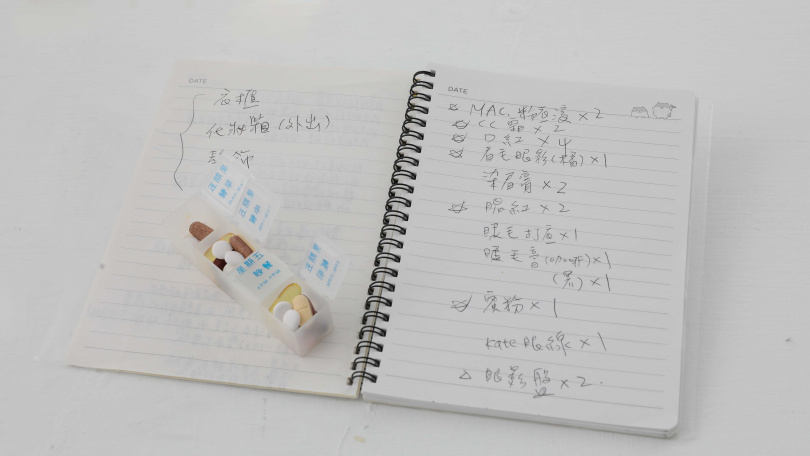 DATE
衣櫃
化妝箱(外出)
髮飾
星期五
晚餐
DATE
☆ MAC 粉底液 × 2
☆ CC霜 × 2
☆ 口紅 × 4
☆ 眉毛眼彩(橘) × 1
染眉膏 × 2
☆ 腮紅 × 2
睫毛打底 × 1
睫毛膏(on/off) × 1
(黑) × 1
☆ 蜜粉 × 1
Kate 眼線 × 1
△ 眼影盤 × 2